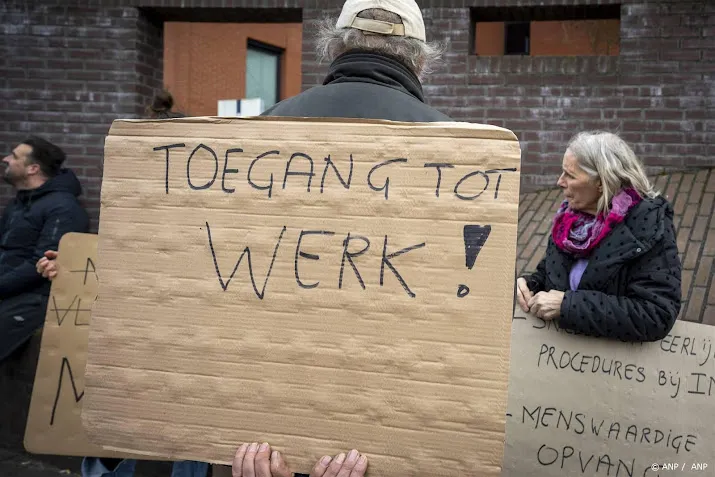 TOEGANG TOT
WERK!
EERLIJ
PROCEDURES BIJ IN
- MENSWAARDIGE
OPVAN
© ANP / ANP